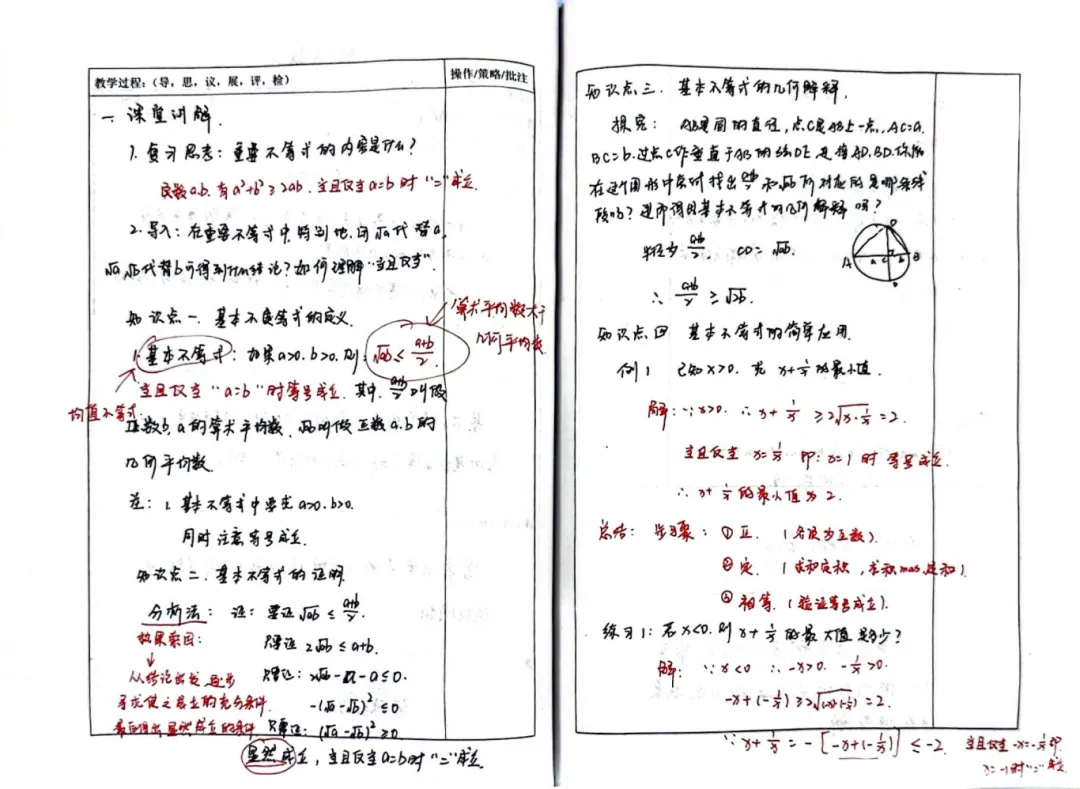 教学过程:(导,思,议,展,评,检)
操作/策略/批注
一 课堂讲解.
1. 复习思考: 重要不等式的内容是什么?
实数a.b. 有a²+b²≥2ab. 当且仅当a=b时"="成立.
2.导入: 在重要不等式中, 特别地, 用√a代替a,
√b代替b可得到什么结论? 如何理解"当且仅当".
知识点一. 基本不等式的定义.
1.基本不等式: 如果a>0.b>0, 则: √ab≤(a+b)/2.
算术平均数大于
几何平均数.
当且仅当"a=b"时等号成立. 其中, (a+b)/2叫做
均值不等式
正数b, a的算术平均数, √ab叫做正数a.b的
几何平均数.
注: 1. 基本不等式中要求a>0.b>0.
同时注意等号成立.
知识点二. 基本不等式的证明.
分析法: 证: 要证√ab≤(a+b)/2.
执果索因:
只要证2√ab≤a+b.
从结论出发, 逐步
只要证: 2√ab-a-b≤0.
寻求使之成立的充分条件
-(√a-√b)²≤0
最后得出显然成立的条件
只要证: (√a-√b)²≥0
显然成立, 当且仅当a=b时"="成立.
知识点三. 基本不等式的几何解释.
探究: AB是圆的直径, 点C是AB上一点, AC=a.
BC=b. 过点C作垂直于AB的弦DE, 连接AD.BD. 你能
在这个图形中找出(a+b)/2和√ab所对应的是哪条线
段吗? 进而得出基本不等式的几何解释吗?
半径为(a+b)/2. CD=√ab.
A a C b B D
∴ (a+b)/2≥√ab.
知识点四 基本不等式的简单应用.
例1 已知x>0. 求x+1/x的最小值.
解: ∵x>0. ∴x+1/x≥2√(x·1/x)=2.
当且仅当x=1/x 即: x=1时等号成立.
∴x+1/x的最小值为2.
总结: 步骤: ①正. (各项为正数).
②定. (求和定积, 求积max, 定和).
③相等. (验证等号成立).
练习1: 若x<0. 则x+1/x的最大值是多少?
解: ∵x<0 ∴-x>0. -1/x>0.
-x+(-1/x)≥2√((-x)(-1/x))=2.
∵x+1/x=-[-x+(-1/x)]≤-2. 当且仅当-x=-1/x即
x=-1时"="成立